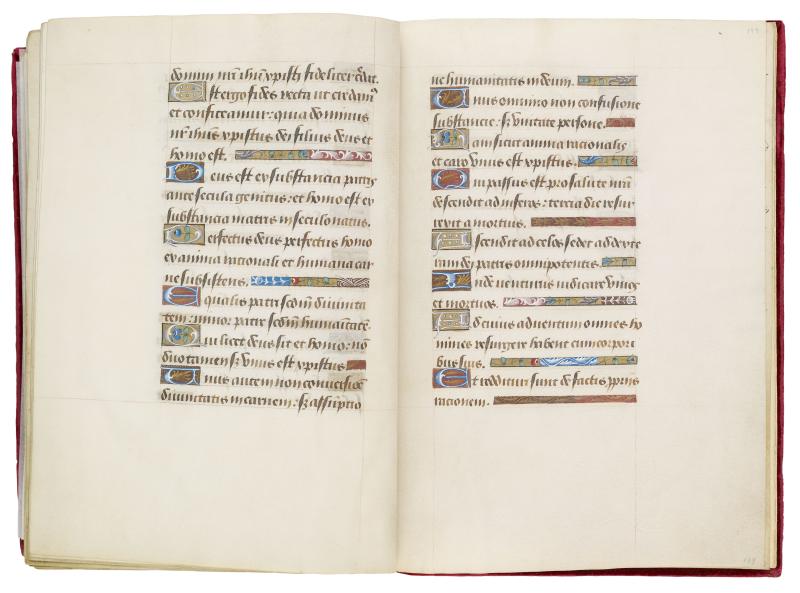 dominum nr̄i ih̄u xp̄isti fideliter c̄dat.
Est ergo fides recta ut credam9
et confiteamur: quia dominus
nr̄ ih̄us xp̄istus dei filius deus et
homo est.
Deus est ex substancia patris
ante secula genitus: et homo est ex
substancia matris in seculo natus.
Perfectus deus perfectus homo
ex anima racionali et humana car
ne subsistens.
Equalis patri scd̄m divinita
tem: minor patre scd̄m humanitatē.
Qui licet deus sit et homo: nō
duo tamen sʒ vnus est xp̄istus.
Unus autem non conversiōe
divinitatis in carnem: sʒ assūptio
ne humanitatis in deum.
Unus omnino non confusione
substancie: sʒ vnitate persone.
Nam sicut anima racionalis
et caro vnus est xp̄istus.
Qui passus est pro salute nr̄a
descendit ad inferos: tercia die resur
rexit a mortuis.
Ascendit ad celos sedet ad dexte
ram dei patris omnipotentis.
Inde venturus iudicare viuos
et mortuos.
Ad cuius adventum omnes ho
mines resurgere habent cum corpori
bus suis.
Et reddituri sunt de factis p̄priis
racionem.